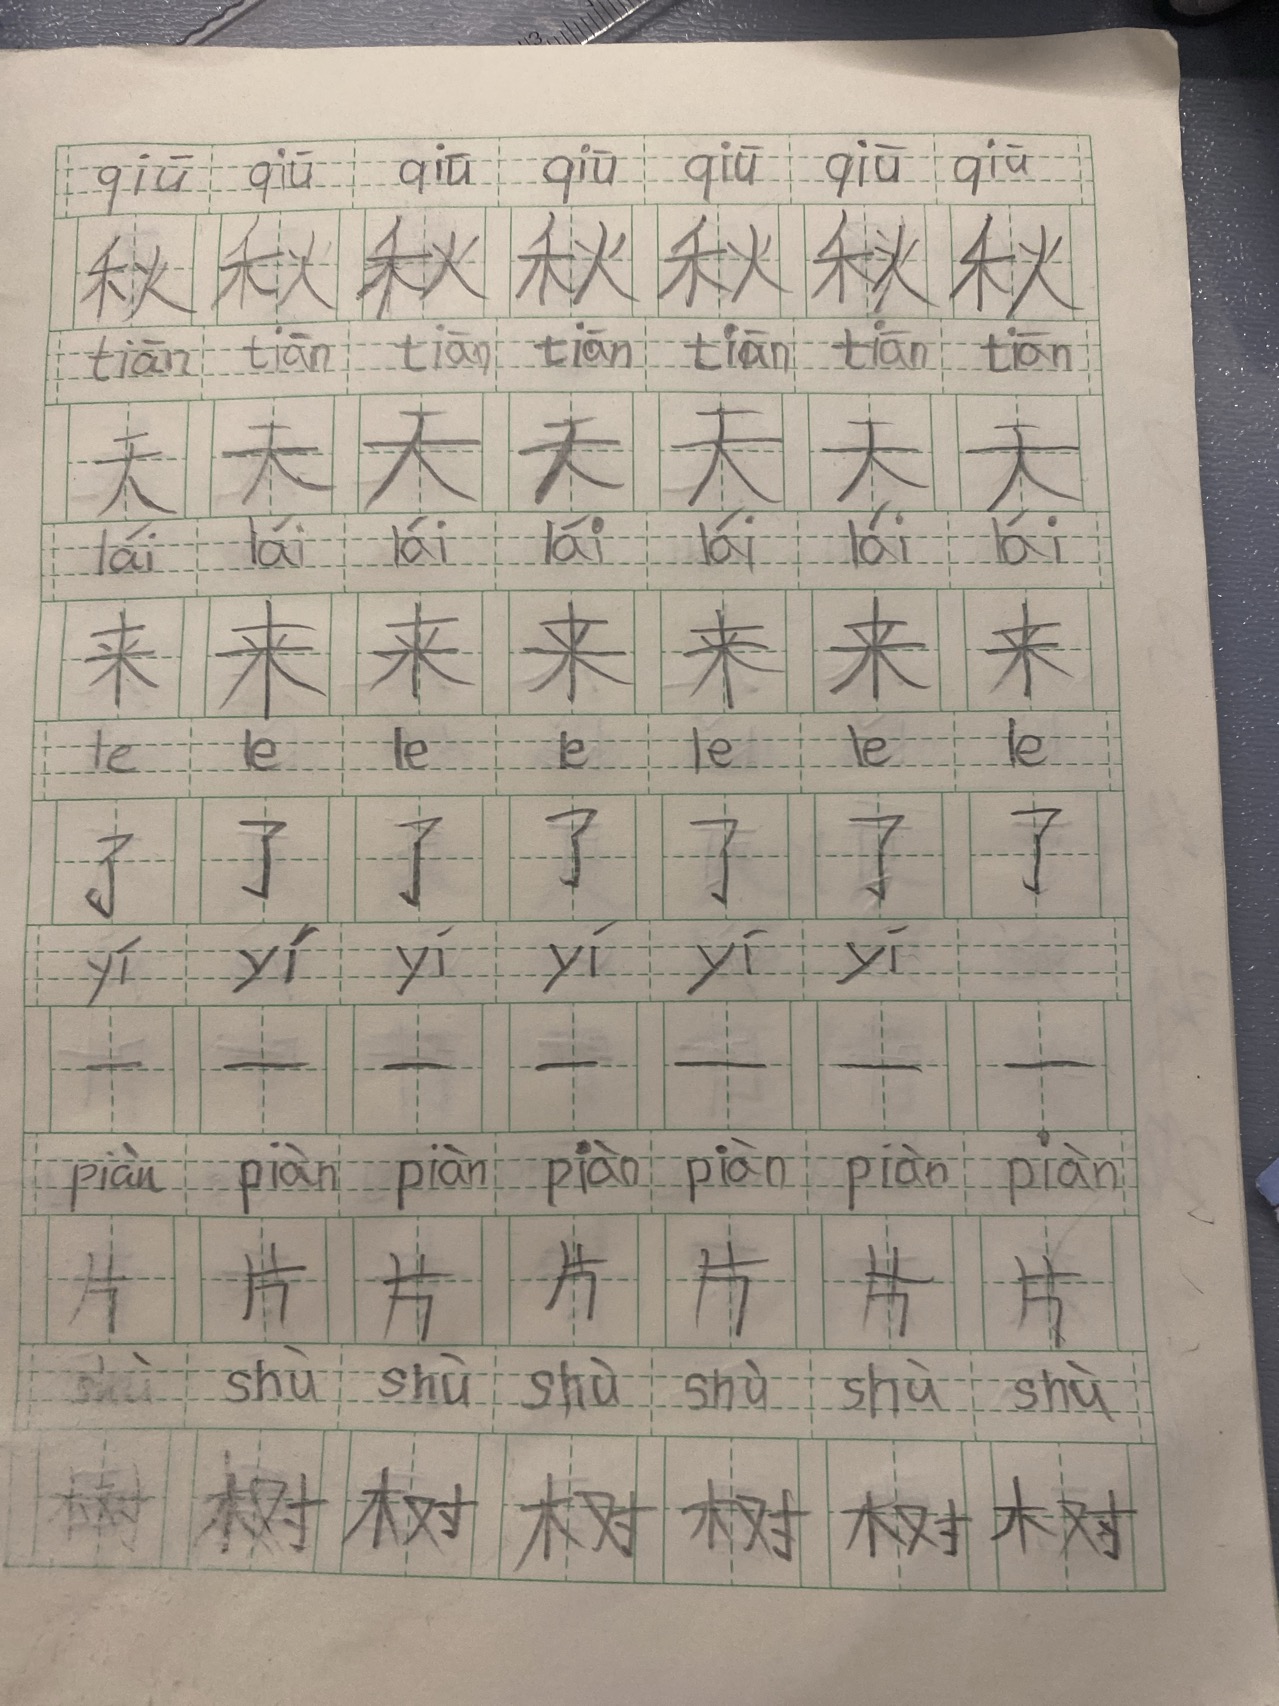 qiū qiū qiū qiū qiū qiū qiū
秋 秋 秋 秋 秋 秋 秋
tiān tiān tiān tiān tiān tiān tiān
天 天 天 天 天 天 天
lái lái lái lái lái lái lái
来 来 来 来 来 来 来
le le le le le le le
了 了 了 了 了 了 了
yí yí yí yí yí yí
一 一 一 一 一 一 一
piàn piàn piàn piàn piàn piàn piàn
片 片 片 片 片 片 片
shù shù shù shù shù shù shù
树 树 树 树 树 树 树